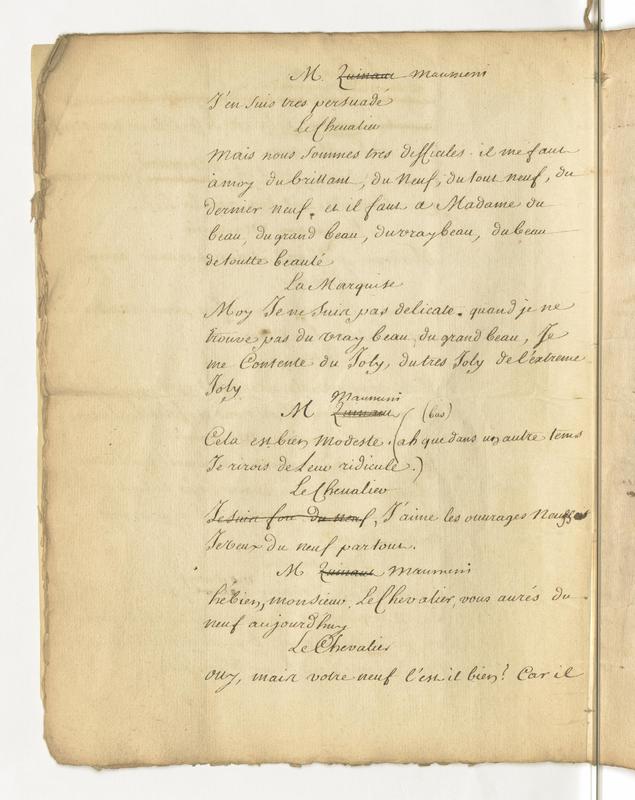 M. Quinaut Maumeni
J'en suis tres persuadé
Le Chevalier
Mais nous sommes tres difficiles. il me faut
a moy du brillant, du Neuf, du tout neuf, du
dernier neuf. et il faut a Madame du
beau, du grand beau, du vray beau, du beau
de toutte beauté
La Marquise
Moy Je ne suis pas delicate. quand je ne
trouve pas du vray beau, du grand beau, Je
me Contente du Joly, du tres Joly de l'extreme
Joly
Maumeni
M Quinaut (bas)
Cela est bien modeste. (ah que dans un autre tems
Je rirois de leur ridicule.)
Le Chevalier
Je suis fou du neuf, J'aime les ouvrages Neufs
Je veux du neuf partout.
M Quinaut Maumeni
hé bien, monsieur Le Chevalier, vous aurés du
neuf aujourdhuy
Le Chevalier
ouy, mais votre neuf l'est il bien? Car il